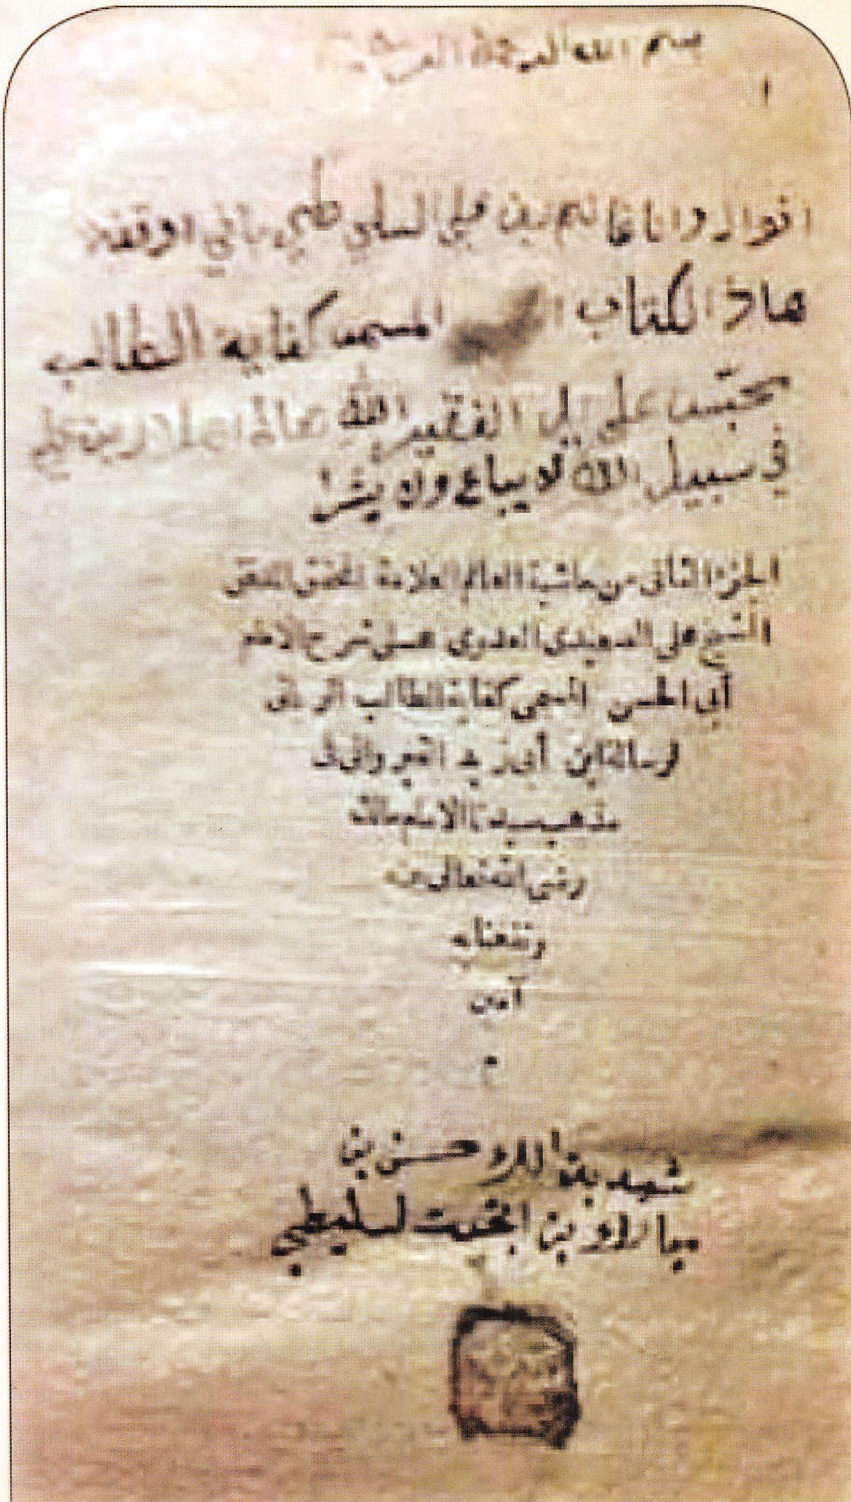 بسم الله الرحمن الرحيم
١
اقول وانا غانم بن علي باني اوقفة
هاذ الكتاب المسمى كفاية الطالب
محبّس على يد الفقير الله بن علي
في سبيل الله لا يباع ولا يشرا
الجزء الثانى من حاشية العالم العلامة المحقق المدقق
الشيخ على الصعيدى العدوى على شرح الامام
أبى الحسن المسمى كفاية الطالب الربانى
لرسالة ابن أبى زيد القيروانى فى
مذهب سيدنا الامام مالك
رضى الله تعالى عنه
ونفعنا به
آمين
م
شهد بذالك حسن بن
مبارك بن